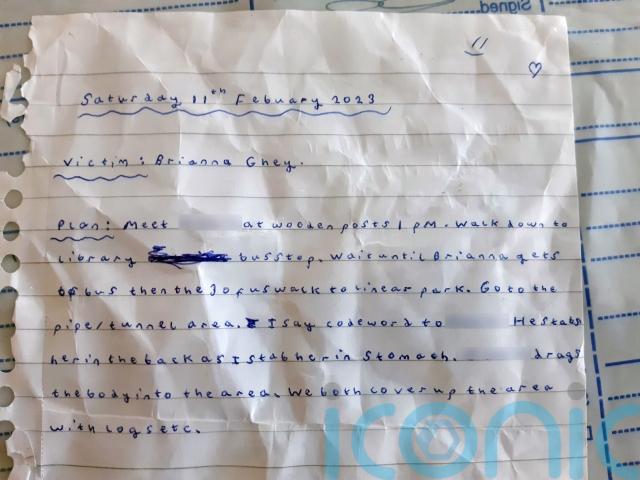 Signed
Saturday 11th Febuary 2023
Victim : Brianna Ghey.
Plan: Meet at wooden posts 1 pm. Walk down to
library bus stop. Wait until Brianna gets
of bus then the 3 of us walk to linear park. Go to the
pipe/tunnel area. I say codeword to He stabs
her in the back as I stab her in Stomach. drags
the body into the area. We both cover up the area
with logs etc.
iconic